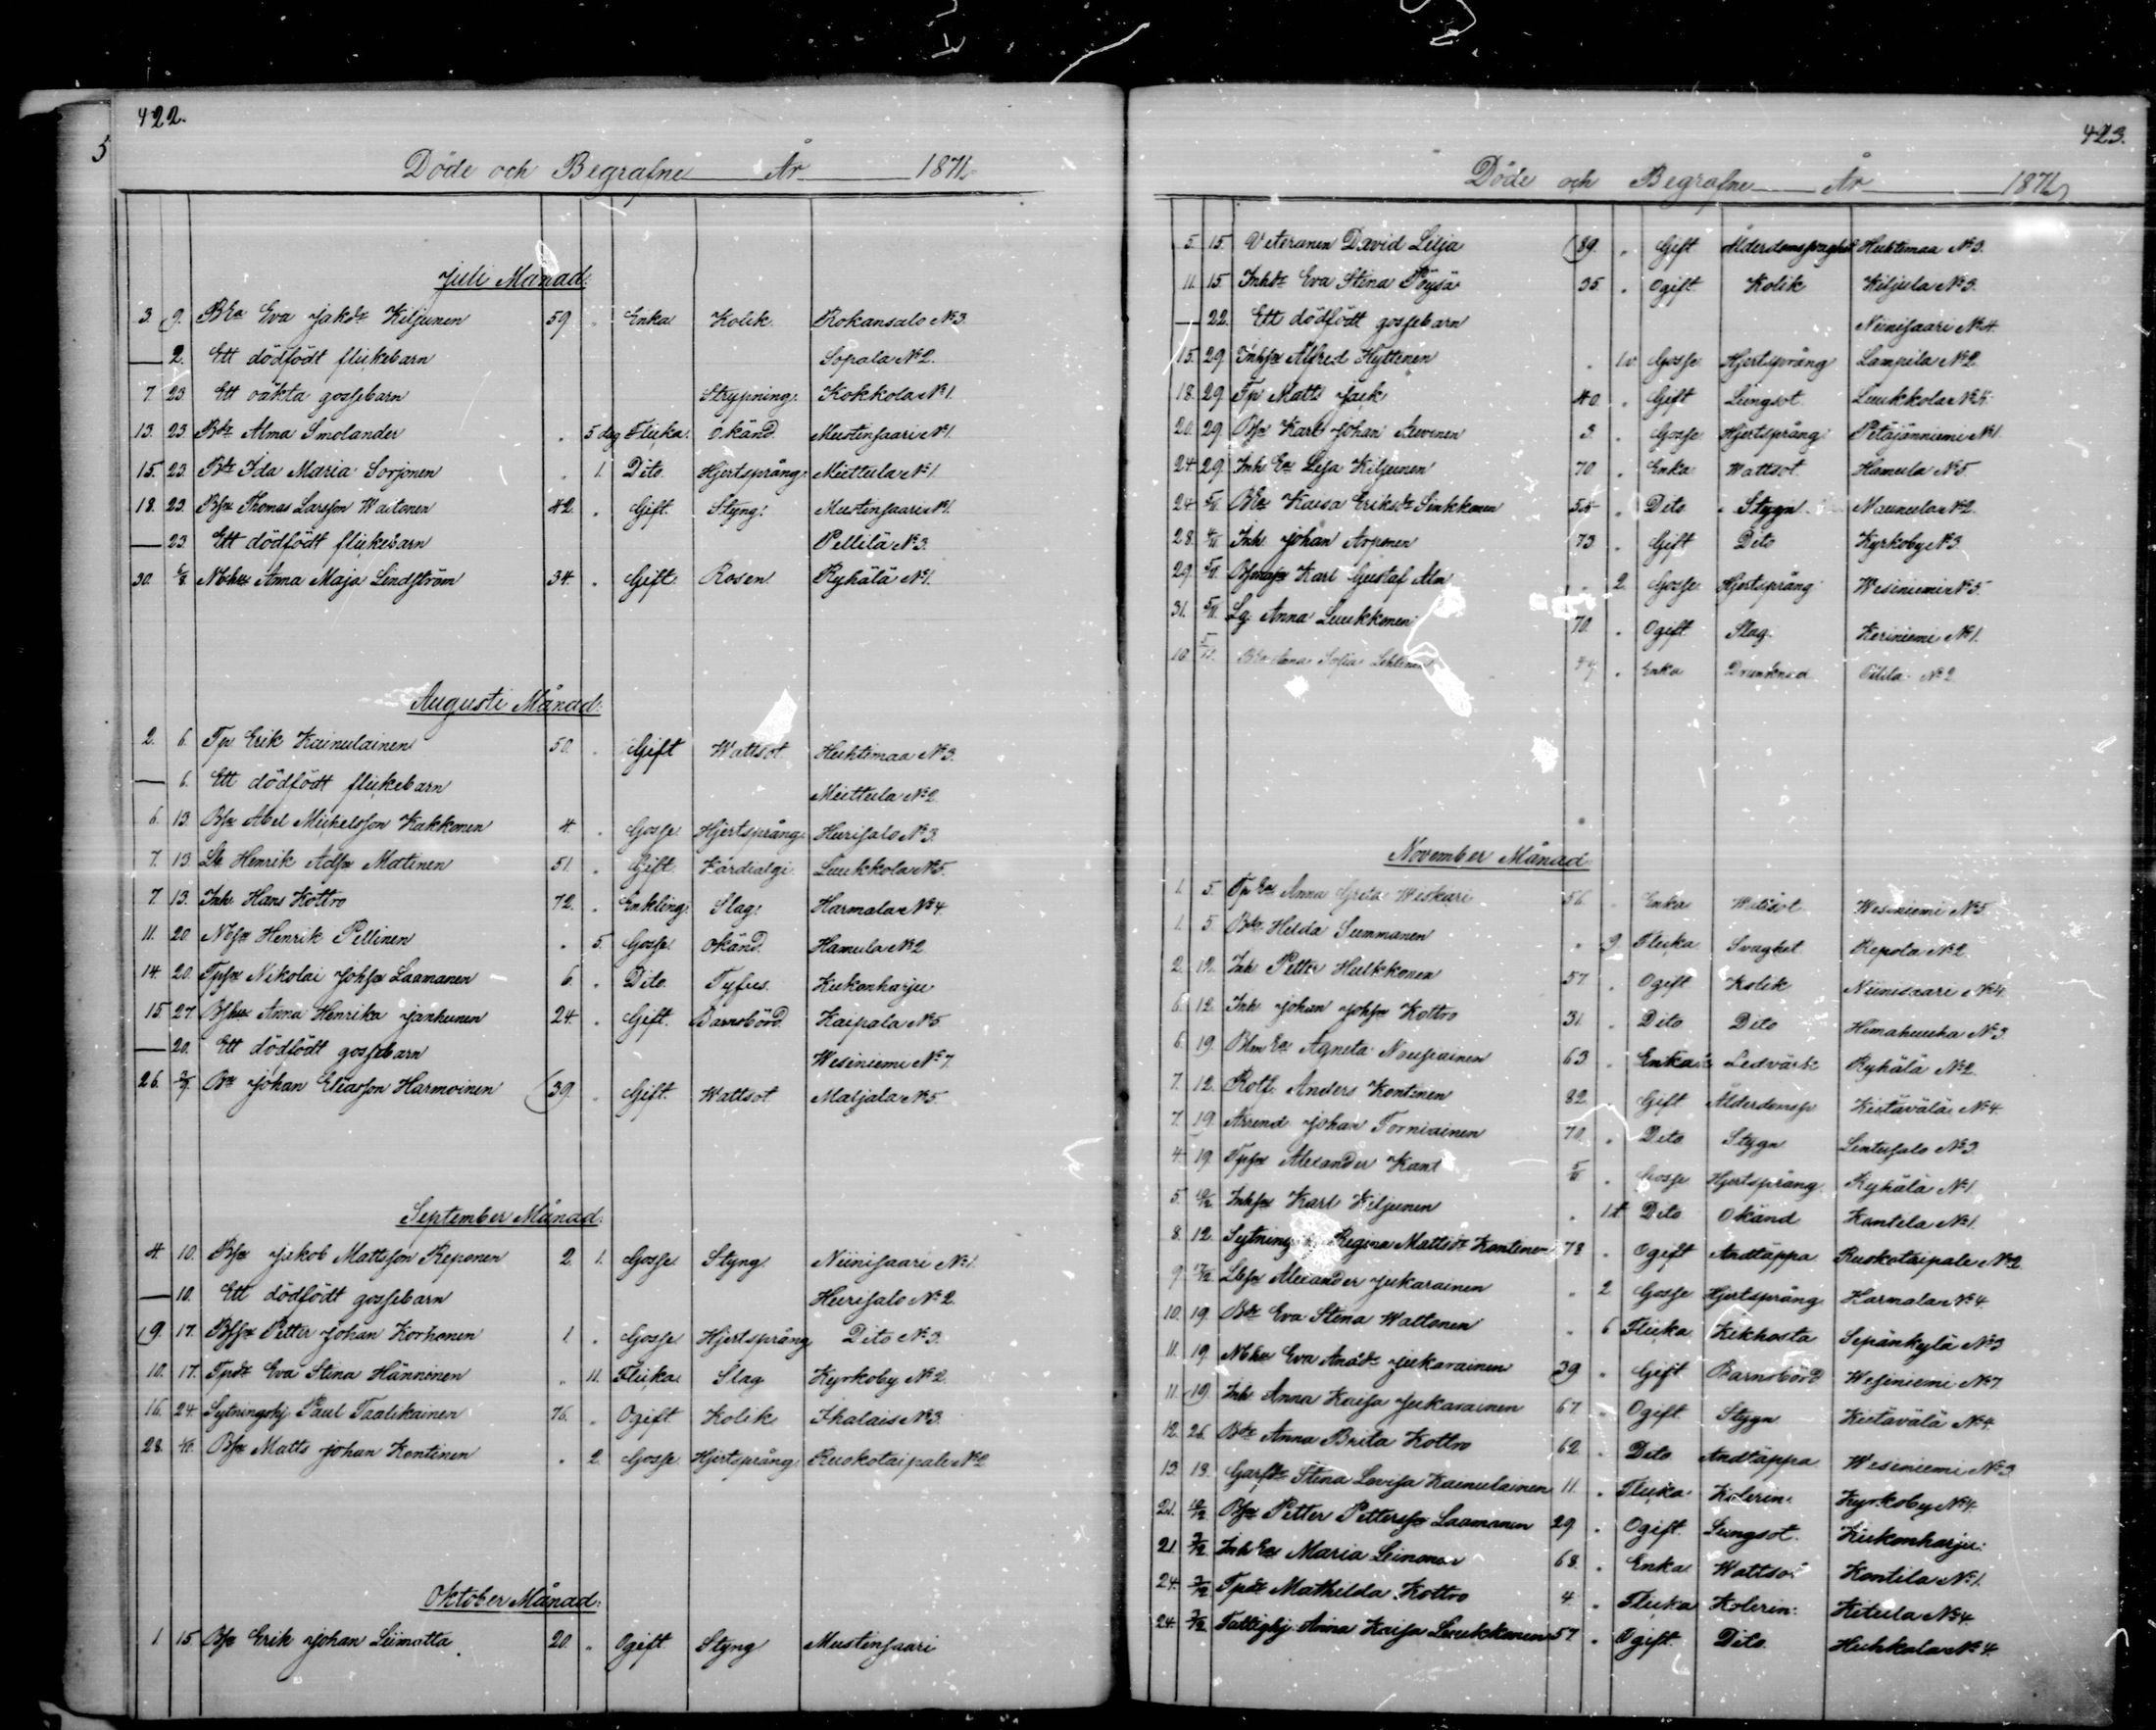 422.
5
Döde och Begrafne År 1871.
Juli Månad.
3. 9. Bea Eva Jakdr Kiljunen 59. Enka Kolik Rokansalo No 3.
— 2. Ett dödfödt flickebarn Sopala No 2.
7 23. Ett oäkta gossebarn Strypning. Kokkola No 1.
13. 23. Bdr Alma Smolander 5 dag Flicka. Okänd. Mustinsaari No 1.
15. 23. Bdr Ida Maria Sorjonen 1. Dito. Hjertsprång. Miettula No 1.
18. 23. Bsn Thomas Larsson Waitonen 42. Gift. Styng. Mustinsaari No 1.
— 23. Ett dödfödt flickebarn Pellilä No 3.
30. 6/8. Anna Maja Lindström 34. Gift. Rosen Ryhälä No 1.
Augusti Månad.
2. 6. Tp Erik Kainulainen 50. Gift Wattsot Huhtimaa No 3.
— 6. Ett dödfödt flickebarn Miettula No 2.
6. 13. Bsn Abel Michelsson Kakkonen 4. Gosse Hjertsprång. Hurisalo No 3.
7. 13. Henrik Adsn Matinen 51. Gift. Kardialgi. Luukkola No 5.
7 13. Inh. Hans Kottro 72. Enkling. Slag. Harmala No 4.
11. 20 Henrik Pellinen 5. Gosse Okänd. Hamula No 2.
14. 20. Tpsn Nikolai Johsn Laamanen 6. Dito. Tyfus. Kukonharju
15 27. Bhu Anna Henrika Janhunen 24. Gift. Barnsbörd. Kaipala No 5.
— 20. Ett dödfödt gossebarn Wesiniemi No 7.
26. 3/9. Johan Eliasson Harmoinen 39. Gift. Wattsot Maljala No 5.
September Månad.
4. 10. Bsn Jakob Mattsson Reponen 2. 1. Gosse Styng. Niinisaari No 1.
— 10. Ett dödfödt gossebarn Hurisalo No 2.
9. 17. Petter Johan Korhonen 1. Gosse Hjertsprång Dito No 3.
10. 17. Tpdr Eva Stina Hänninen 11. Flicka Slag Kyrkoby No 2.
16. 24. Sytninghj. Paul Taalikainen 76. Ogift Kolik Ihalais No 3.
28. Bsn Matts Johan Kontinen 2. Gosse Hjertsprång. Ruokotaipale No 2
Oktober Månad.
1 15 Bsn Erik Johan Liimatta 20. Ogift Styng Mustinsaari
423.
Döde och Begrafne År 1871.
5. 15. Veteranen David Lilja 89. Gift Ålderdomssvaghet Huhtimaa No 3.
11. 15. Inhdr Eva Stina Pöysä 35. Ogift Kolik Kiljula No 3.
— 22. Ett dödfödt gossebarn Niinisaari No 4.
15. 29 Inhsn Alfred Hyttinen 1 v. Gosse Hjertsprång Lampila No 2.
18. 29. Tp Matts Jack 40. Gift Lungsot. Luukkola No 5.
20. 29 Bsn Karl Johan Auvinen 3. Gosse Hjertsprång Petäjänniemi No 1
24. 29. Inh. Ea Lisa Kiljunen 70 Enka Wattsot Hamula No 5
24 5/11. Bea Kaisa Eriksdr Sinkkonen 55 Dito Stygn Maunula No 2.
28. Inh. Johan Arponen 73. Gift Dito Kyrkoby No 3.
29 5/11. Karl Gustaf Alm 2 Gosse Hjertsprång Wesiniemi No 5.
31. 5/11. Lg. Anna Luukkonen 70. Ogift Slag. Keriniemi No 1.
10 5/11. Bea Anna Sofia Lehtinen Enka Drunknad No 2.
November Månad.
1. 5. Tp Ea Anna Greta Weskari 56. Enka Wattsot Wesiniemi No 5.
1. 5. Bdr Hilda Summanen 9. Flicka Svaghet Repola No 2.
2. 12. Inh. Petter Hulkkonen 57. Ogift Kolik Niinisaari No 4.
6. 12. Inh. Johan Johsn Kottro 31. Dito Dito Himahuuha No 3.
6. 19. Agneta Nousiainen 63 Enka Ledvärk Ryhälä No 2.
7. 12. Rotf. Anders Kontinen 82. Gift Ålderdomss Kietävälä No 4.
7. 19. Arrend. Johan Torniainen 70. Dito Stygn Lintusalo No 3.
4. 19. Tpsn Alexander Kant Gosse Hjertsprång Ryhälä No 1.
5. Inhsn Karl Kiljunen 1 t. Dito Okänd Kontila No 1.
8. 12. Sytning Regina Mattsdr Kontinen 78. Ogift Andtäppa Ruokotaipale No 2
9 Alexander Jukarainen 2 Gosse Hjertsprång Harmala No 4
10. 19. Bdr Eva Stina Waltonen 6 Flicka Kikhosta Sepänkylä No 3
11. 19. Eva Andr Jukarainen 39. Gift Barnsbörd Wesiniemi No 7
11. 19. Inh. Anna Kaisa Jukarainen 67. Ogift Stygn Kietävälä No 4.
12. 26. Bdr Anna Brita Kottro 62. Dito Andtäppa Wesiniemi No 3
13. 19. Stina Lovisa Kainulainen 11. Flicka Kolerin. Kyrkoby No 4.
21. Bsn Petter Pettersn Laamanen 29. Ogift Lungsot. Kukonharju.
21. 3/12 Inh Ea Maria Leinonen 68. Enka Wattsot Kontila No 1.
24. 3/12 Tpdr Mathilda Kottro 4. Flicka Kolerin. Kitula No 4.
24. 3/12. Fattighj. Anna Kaisa Luukkonen 57. Ogift. Dito. Huhkala No 4.